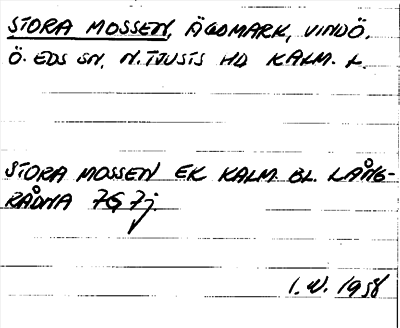 STORA MOSSEN, ÄGOMARK, VINÖ,
Ö. EDS SN, N. TJUSTS HD KALM. L.
STORA MOSSEN EK KALM. BL. LÅNG-
RÅDNA 7G 7j.
1.W. 1958